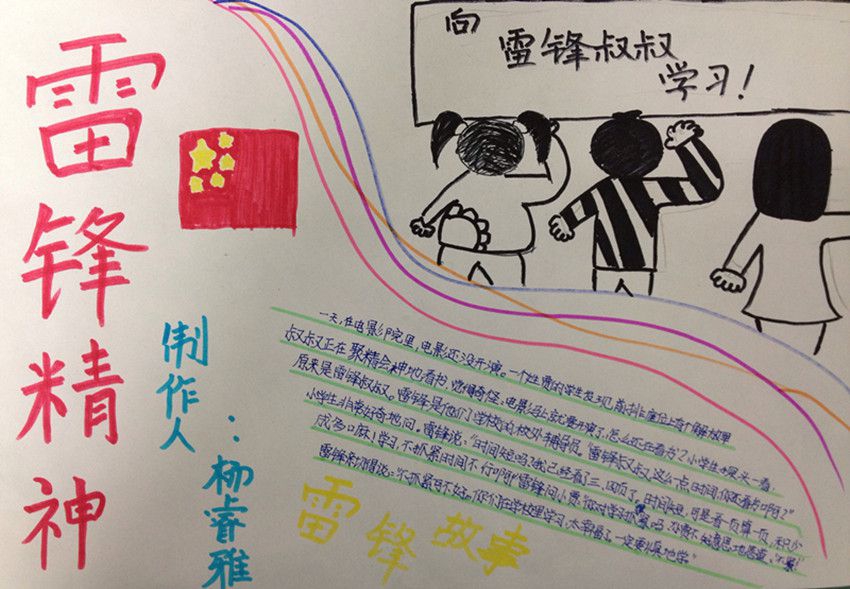 雷锋精神
制作人：杨睿雅
向
雷锋叔叔
学习！
一天，在电影院里，电影还没开演。一个姓贾的学生发现前排座位上有个解放军
叔叔正在聚精会神地看书，觉得奇怪：电影马上就要开演了，怎么还在看书？小学生探头一看，
原来是雷锋叔叔。雷锋是他们学校的校外辅导员。雷锋叔叔，这么点时间，你还看书啊？”
小学生非常好奇地问。雷锋说：“时间短吗？我已经看了三、四页了。时间短，可是看一页算一页，积少
成多嘛！学习，不抓紧时间不行啊！”雷锋问小贾：你对学习抓紧吗，小贾不好意思地回答，“不紧”
雷锋亲切得说：“不抓紧可不好。你们在学校里学习，太幸福了，一定要认真地学。”
雷锋故事